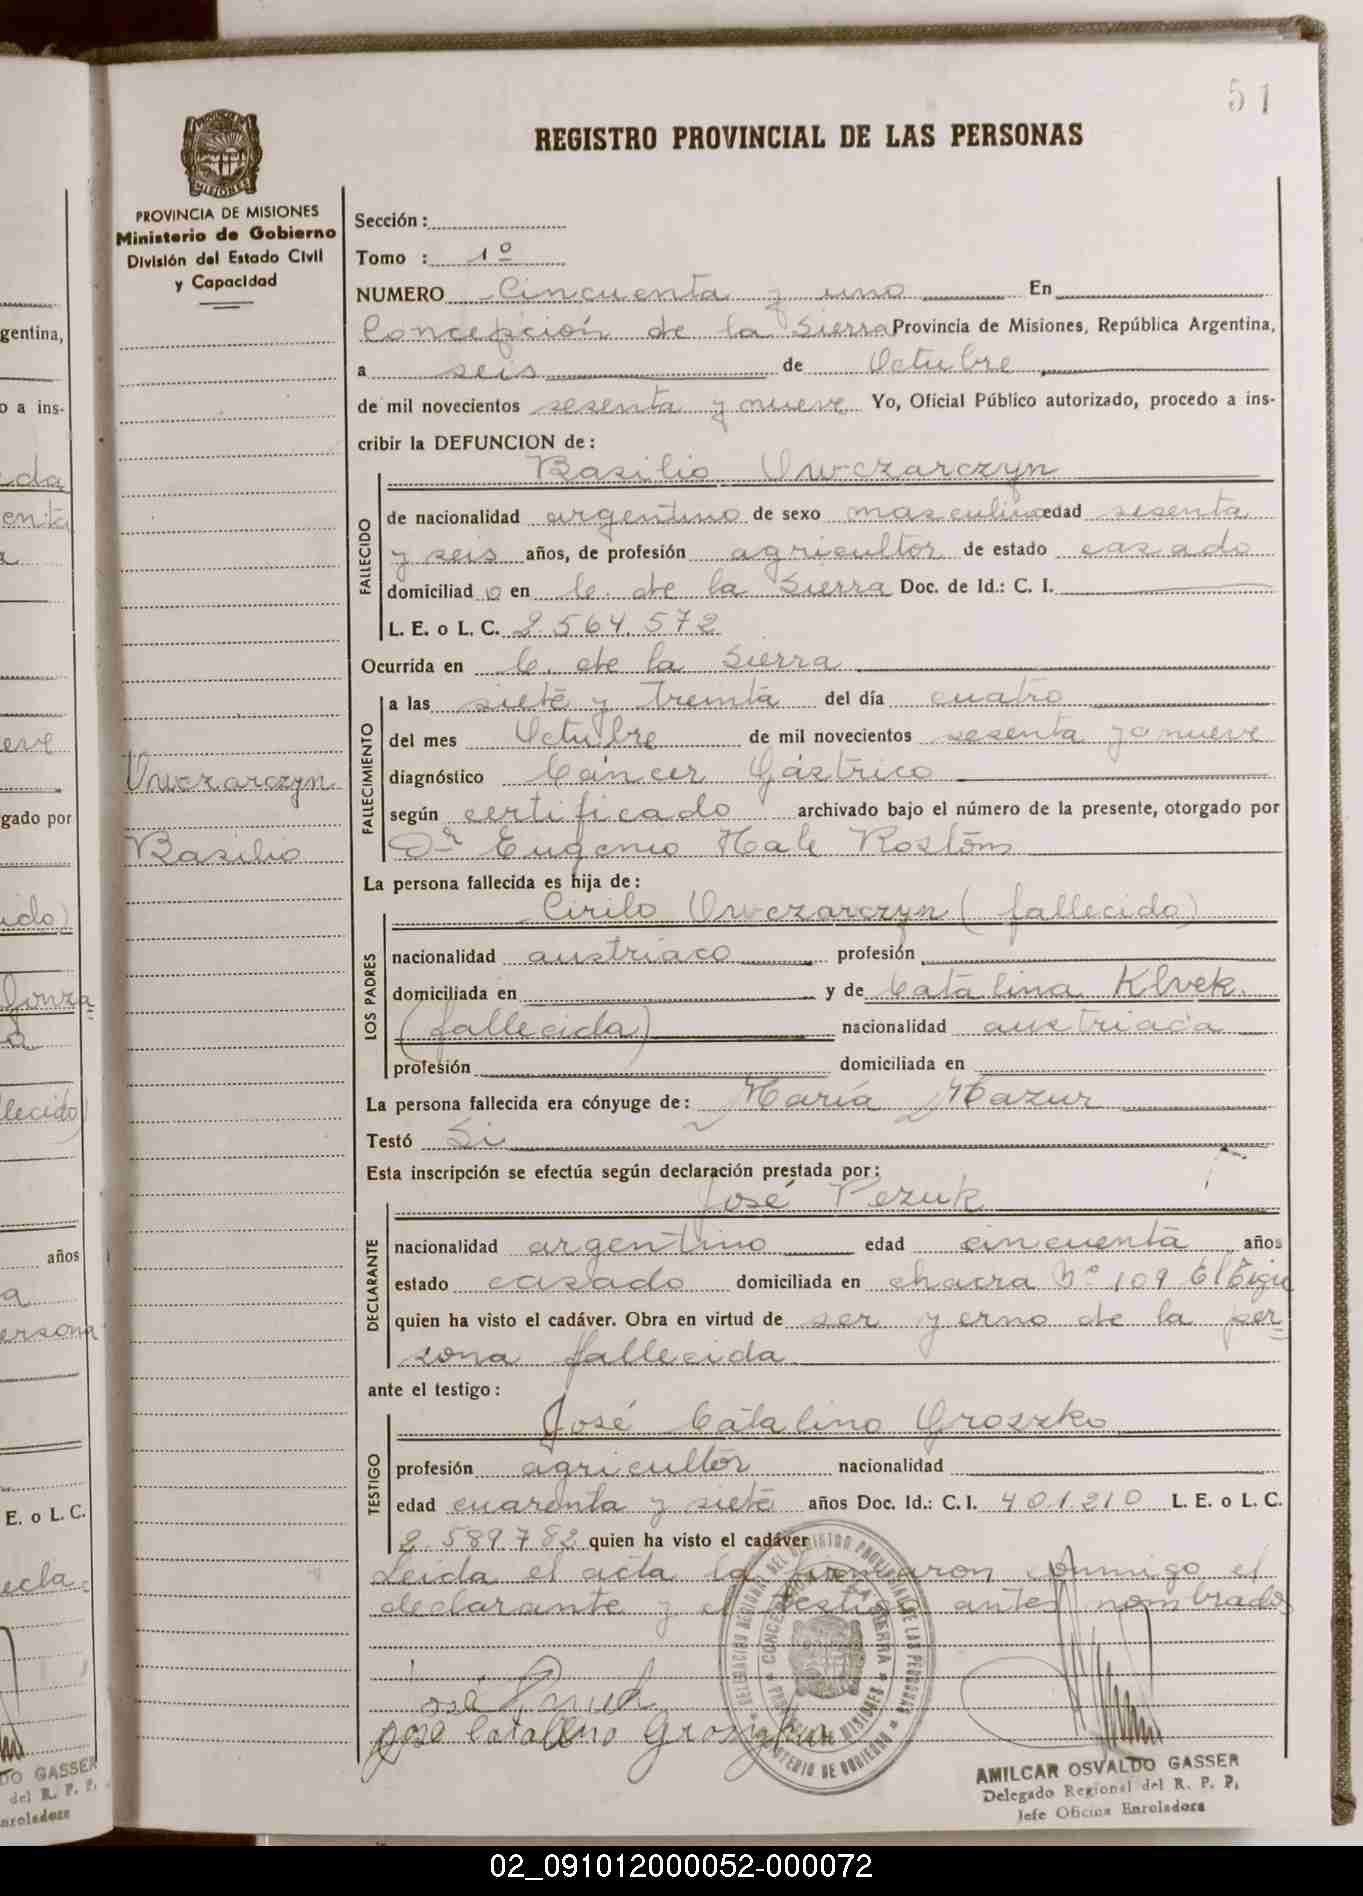 51
REGISTRO PROVINCIAL DE LAS PERSONAS
PROVINCIA DE MISIONES
Ministerio de Gobierno
División del Estado Civil
y Capacidad
Sección:
Tomo : 1º
NUMERO Cincuenta y uno En
Concepción de la Sierra Provincia de Misiones, República Argentina,
a seis de Octubre
de mil novecientos sesenta y nueve Yo, Oficial Público autorizado, procedo a ins-
cribir la DEFUNCION de:
Basilio Owczarczyn
FALLECIDO
de nacionalidad argentino de sexo masculino edad sesenta
y seis años, de profesión agricultor de estado casado
domiciliad o en C. de la Sierra Doc. de Id.: C. I.
L. E. o L. C. 2.564.572
Ocurrida en C. de la Sierra
FALLECIMIENTO
a las siete y treinta del día cuatro
del mes Octubre de mil novecientos sesenta y nueve
diagnóstico Cáncer Gástrico
según certificado archivado bajo el número de la presente, otorgado por
Dr Eugenio
Owczarczyn
Basilio
La persona fallecida es hija de:
Cirilo Owczarczyn (fallecido)
LOS PADRES
nacionalidad austriaco profesión
domiciliada en y de Catalina
(fallecida) nacionalidad austriaca
profesión domiciliada en
La persona fallecida era cónyuge de: María Mazur
Testó Si
Esta inscripción se efectúa según declaración prestada por:
José
DECLARANTE
nacionalidad argentino edad cincuenta años
estado casado domiciliada en chacra Nº 109
quien ha visto el cadáver. Obra en virtud de ser yerno de la per-
sona fallecida
ante el testigo:
José Catalino Groszko
TESTIGO
profesión agricultor nacionalidad
edad cuarenta y siete años Doc. Id.: C. I. 401210 L. E. o L. C.
2.589782 quien ha visto el cadáver
Leida el acta la firmaron conmigo el
declarante y el testigo antes nombrados
José
José Catalino
AMILCAR OSVALDO GASSER
Delegado Regional del R. P. P.
Jefe Oficina Enroladora
02_091012000052-000072